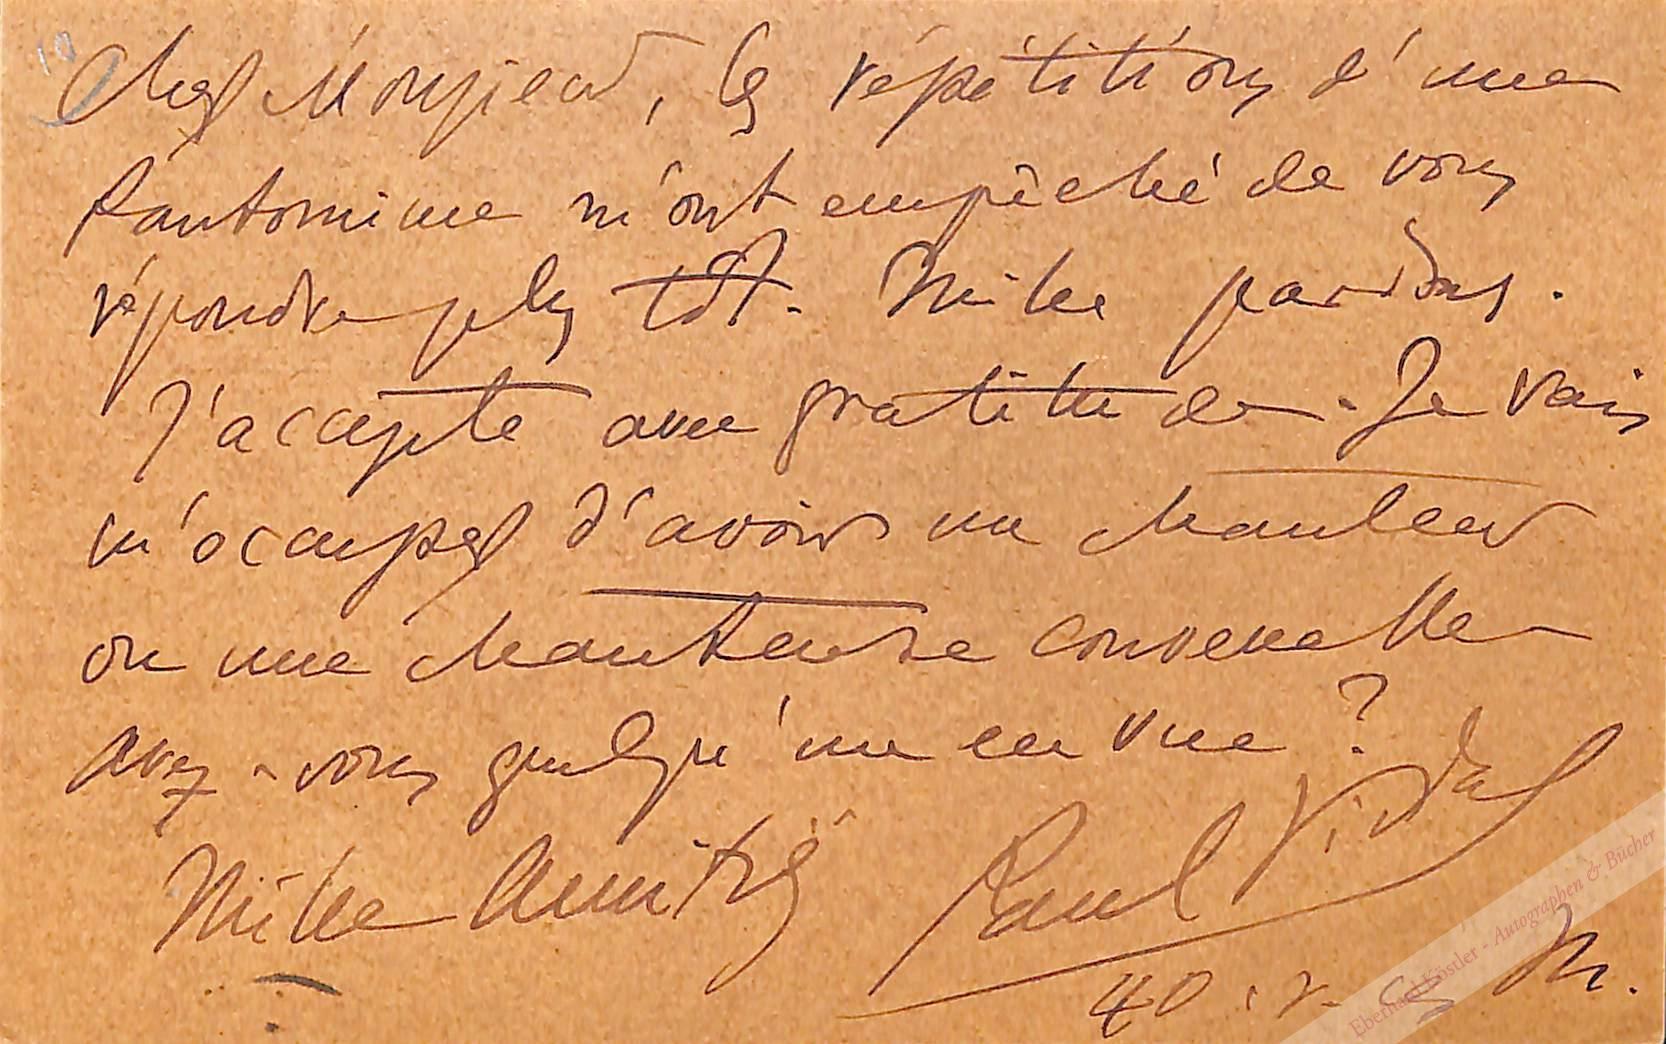 Cher Monsieur, les répétitions d'une
Pantomime m'ont empêché de vous
répondre plus tôt. Mille pardons.
J'accepte avec gratitude. Je vais
m'occuper d'avoir un chanteur
ou une chanteuse convenable
avez-vous quelqu'un en vue?
Mille Amitiés Paul Vidal
40 . r. M.
Eberhard Köstler - Autographen & Bücher